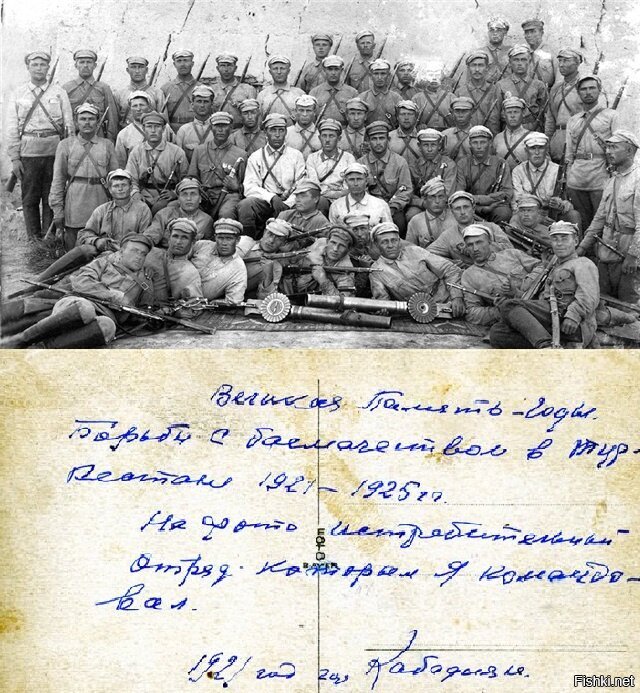 Великая Память - Годы.
Борьбы с басмачеством в Тур-
кестане 1921 - 1925 гг.
На фото истребительный
отряд. которым я командо-
вал.
1921 год гор Кабадиан.
Fishki.net